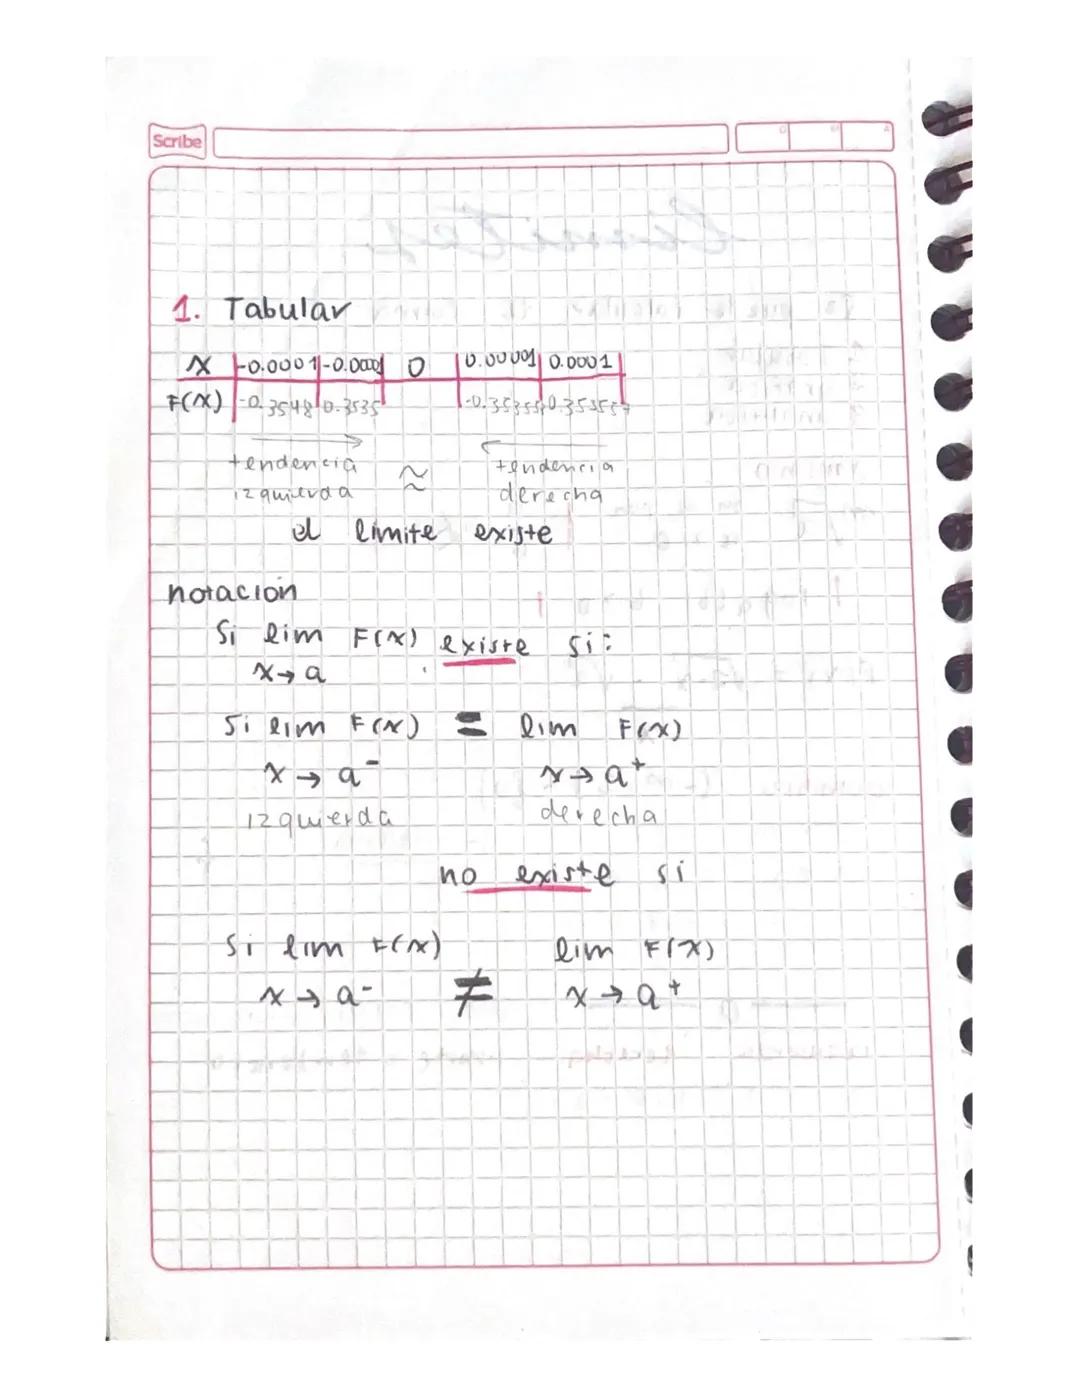 Scribe
1. Tabular
x -0.0001 -0.00001 0 0.00001 0.0001
F(x) -0.3548 0.3535 -0.35355 0.353557
tendencia ≈ tendencia
izquierda derecha
el limite existe
notación
Si lim F(x) existe si:
x→a
Si lim F(x) = lim F(x)
x→a⁻ x→a⁺
izquierda derecha
no existe si
Si lim F(x) lim F(x)
x→a⁻ ≠ x→a⁺